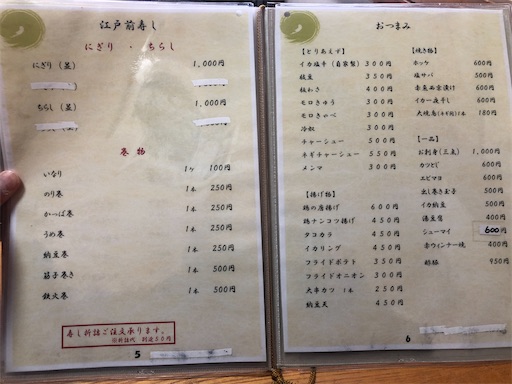 江戸前寿し
にぎり ・ ちらし
にぎり (並) 1,000円
ちらし (並) 1,000円
巻物
いなり 1ヶ 100円
のり巻 1本 250円
かっぱ巻 1本 250円
うめ巻 1本 250円
納豆巻 1本 250円
筋子巻き 1本 500円
鉄火巻 1本 500円
寿し折詰ご注文承ります。
※折詰代 別途50円
5
おつまみ
【とりあえず】
イカ塩辛 (自家製) 300円
枝豆 350円
板わさ 400円
モロきゅう 300円
モロキャベ 300円
冷奴 300円
チャーシュー 500円
ネギチャーシュー 550円
メンマ 300円
【揚げ物】
鶏の唐揚げ 600円
鶏ナンコツ揚げ 450円
タコカラ 450円
イカリング 450円
フライドポテト 350円
フライドオニオン 300円
大串カツ 1本 250円
納豆天 450円
【焼き物】
ホッケ 600円
塩サバ 500円
赤魚西京漬け 600円
イカ一夜干し 600円
1本 180円
【一品】
お刺身(三点) 1,000円
カツとじ 600円
エビマヨ 600円
出し巻き玉子 500円
イカ納豆 500円
湯豆腐 400円
シューマイ 600円
赤ウィンナー焼 400円
950円
6